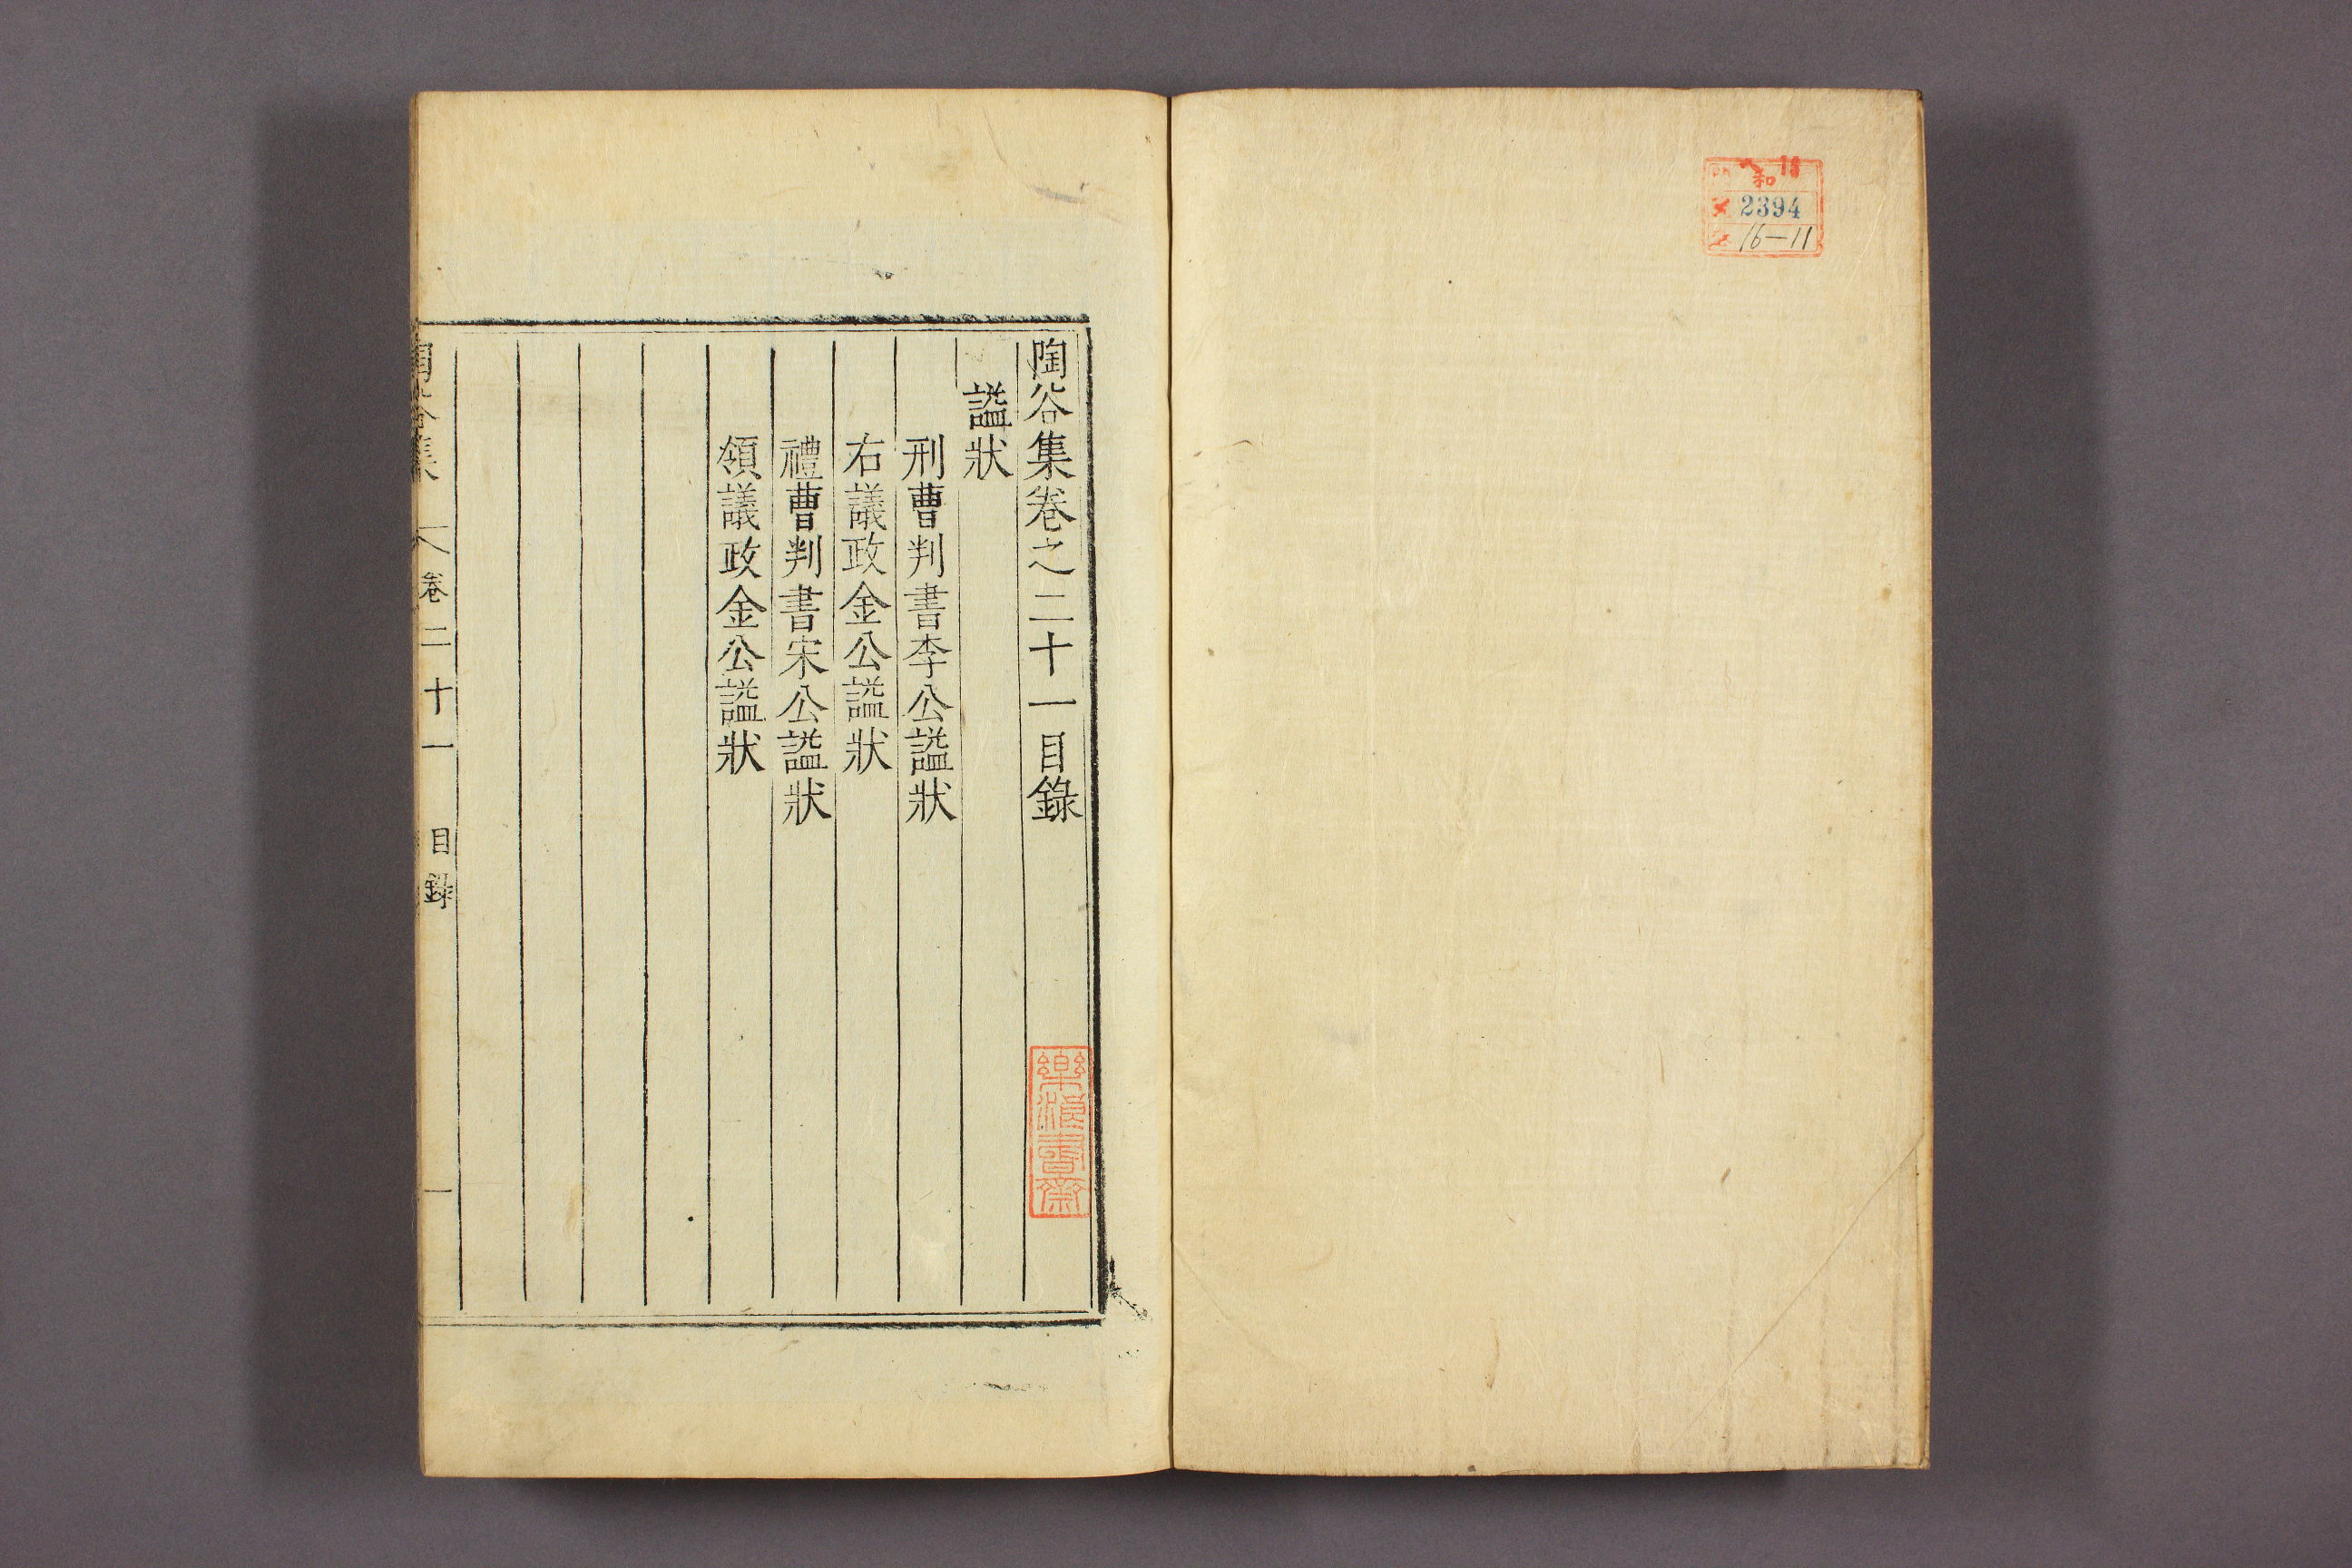 和
2394
16-11
陶谷集卷之二十一目錄
謚狀
刑曹判書李公謚狀
右議政金公謚狀
禮曹判書宋公謚狀
領議政金公謚狀
樂浪書齋
陶谷集
卷二十一
目錄
一